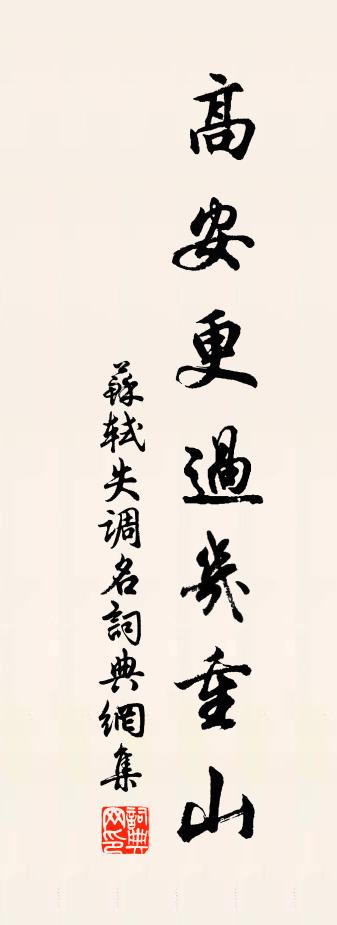 高安更過幾重山
蘇軾失调名詞典網集
詞典网印